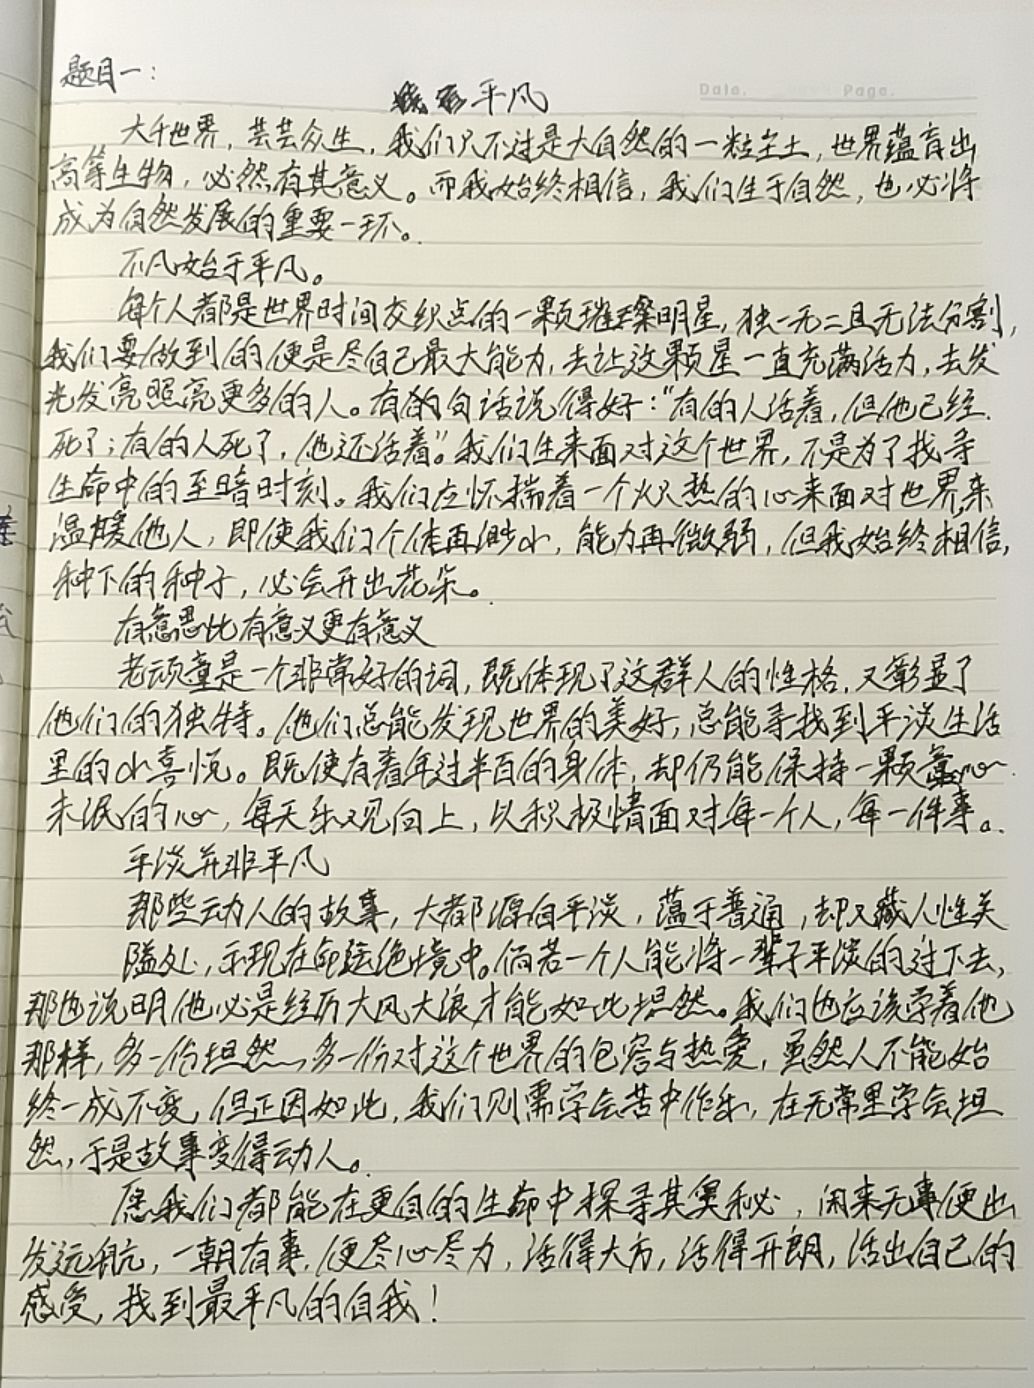 题目一：
平凡
Date. Page.
大千世界，芸芸众生，我们只不过是大自然的一粒尘土，世界蕴育出
高等生物，必然有其意义。而我始终相信，我们生于自然，也必将
成为自然发展的重要一环。
不凡始于平凡。
每个人都是世界时间交织点的一颗璀璨明星，独一无二且无法分割，
我们要做到的便是尽自己最大能力，去让这颗星一直充满活力，去发
光发亮照亮更多的人。有的句话说得好：“有的人活着，但他已经
死了；有的人死了，他还活着”。我们生来面对这个世界，不是为了找寻
生命中的至暗时刻。我们应怀揣着一个火热的心来面对世界，来
温暖他人，即使我们个体再渺小，能力再微弱，但我始终相信，
种下的种子，必会开出花朵。
有意思比有意义更有意义
老顽童是一个非常好的词，既体现了这群人的性格，又彰显了
他们的独特。他们总能发现世界的美好，总能寻找到平淡生活
里的小喜悦。既使有着年过半百的身体，却仍能保持一颗童心
未泯的心，每天乐观向上，以积极情面对每一个人，每一件事。
平淡并非平凡
那些动人的故事，大都源自平淡，蕴于普通，却又藏人性关
隘处，示现在命运绝境中。倘若一个人能将一辈子平淡的过下去，
那也说明他必是经历大风大浪才能如此坦然。我们也应该学着他
那样，多一份坦然，多一份对这个世界的包容与热爱，虽然人不能始
终一成不变，但正因如此，我们则需学会苦中作乐，在无常里学会坦
然，于是故事变得动人。
愿我们都能在更自的生命中探寻其奥秘，闲来无事便出
发远航，一朝有事，便尽心尽力，活得大方，活得开朗，活出自己的
感受，找到最平凡的自我！